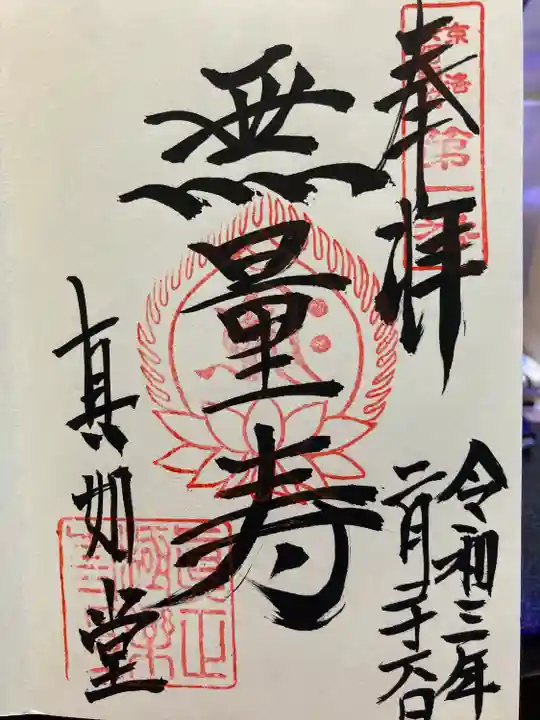 奉拝
第一番
令和三年
二月二十六日
無量寿
真如堂